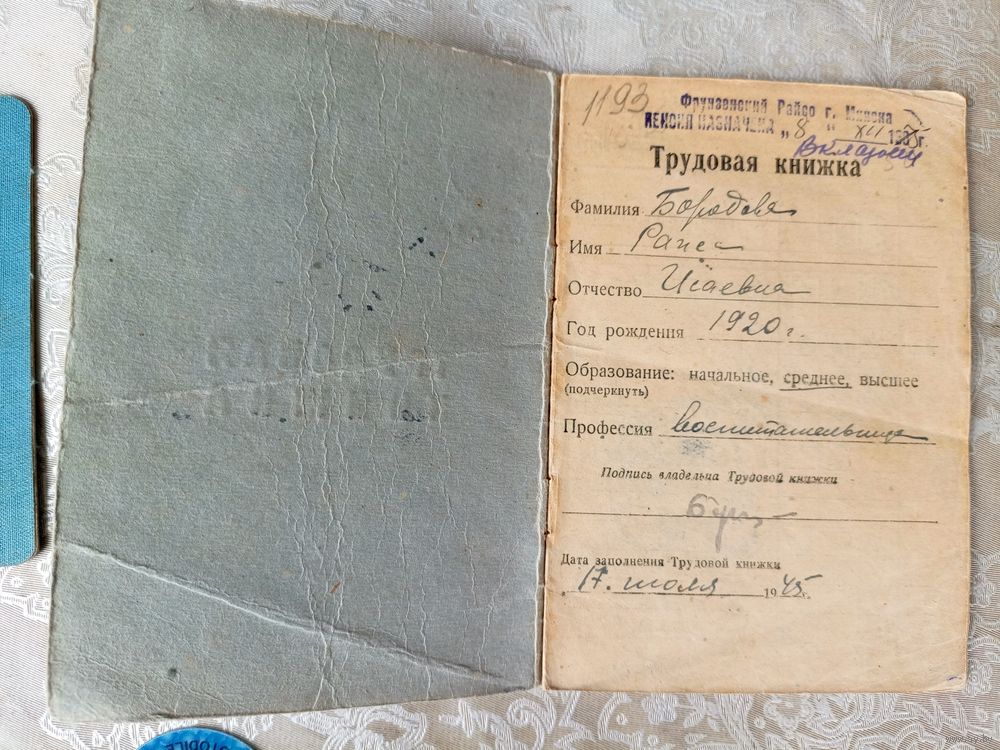 1193
Фрунзенский Райсо г. Минска
ПЕНСИЯ НАЗНАЧЕНА „ 8 " XII 19 г.
Трудовая книжка
Фамилия
Имя Раиса
Отчество Исаевна
Год рождения 1920 г.
Образование: начальное, среднее, высшее
(подчеркнуть)
Профессия воспитательница
Подпись владельца Трудовой книжки
Дата заполнения Трудовой книжки
17. июля 1945 г.